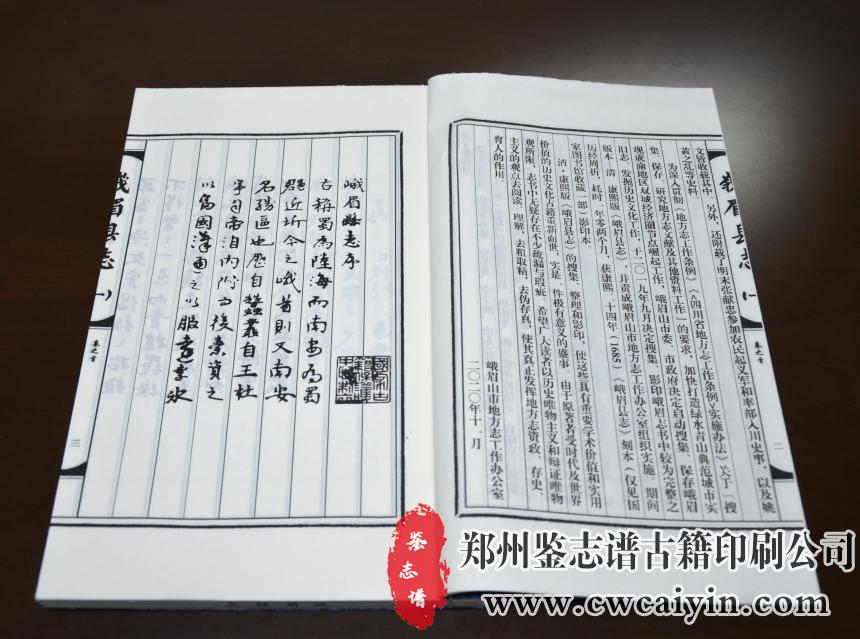 文皆收载其中。另外，还附载了明末张献忠参加农民起义军和率部入川史事，以及姚
黄之乱等史料。
为深入贯彻《地方志工作条例》《〈四川省地方志工作条例〉实施办法》关于“搜
集、保存、研究地方志文献及其他资料工作”的要求，加快打造绿水青山典范城市，实
现成渝地区双城经济圈节点崛起工作，峨眉山市委、市政府决定启动搜集、保存峨眉
旧志，发掘历史文化工作，二〇一九年九月决定搜集、影印峨眉志书中较为完整之
版本—清·康熙版《峨眉县志》，并责成峨眉山市地方志工作办公室组织实施。期间
历经周折，耗时一年零两个月，获康熙二十四年（1685）《峨眉县志》刻本（仅见国
家图书馆收藏一部）影印本。
清·康熙版《峨眉县志》的搜集、整理和影印，使这些具有重要学术价值和实用
价值的历史文化古籍重新面世，实是一件极有意义的盛事。由于原著者受时代及世界
观所限，志书中无疑存在不少疏漏与瑕疵，希望广大读者以历史唯物主义和辩证唯物
主义的观点去阅读、理解，去粗取精，去伪存真，使其真正发挥地方志资政、存史、
育人的作用。
峨眉山市地方志工作办公室
二〇二〇年十一月
峨眉县志（一）
卷之首
二
峨眉縣志序
古稱蜀為陸海而南安為蜀
郡近圻今之峨眉則又南安
名勝區也歷自蠶叢自王杜
宇自帝洎內附
以富國漢通之以服
峨眉县志（一）
卷之首
三
鉴志谱
郑州鉴志谱古籍印刷公司
www.cwcaiyin.com